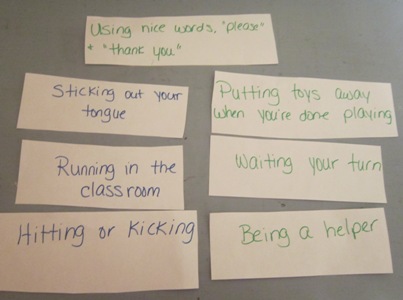 Using nice words, "please"
+ "thank you"
Sticking out your
tongue
Putting toys away
when you're done playing
Running in the
classroom
Waiting your turn
Hitting or Kicking
Being a helper